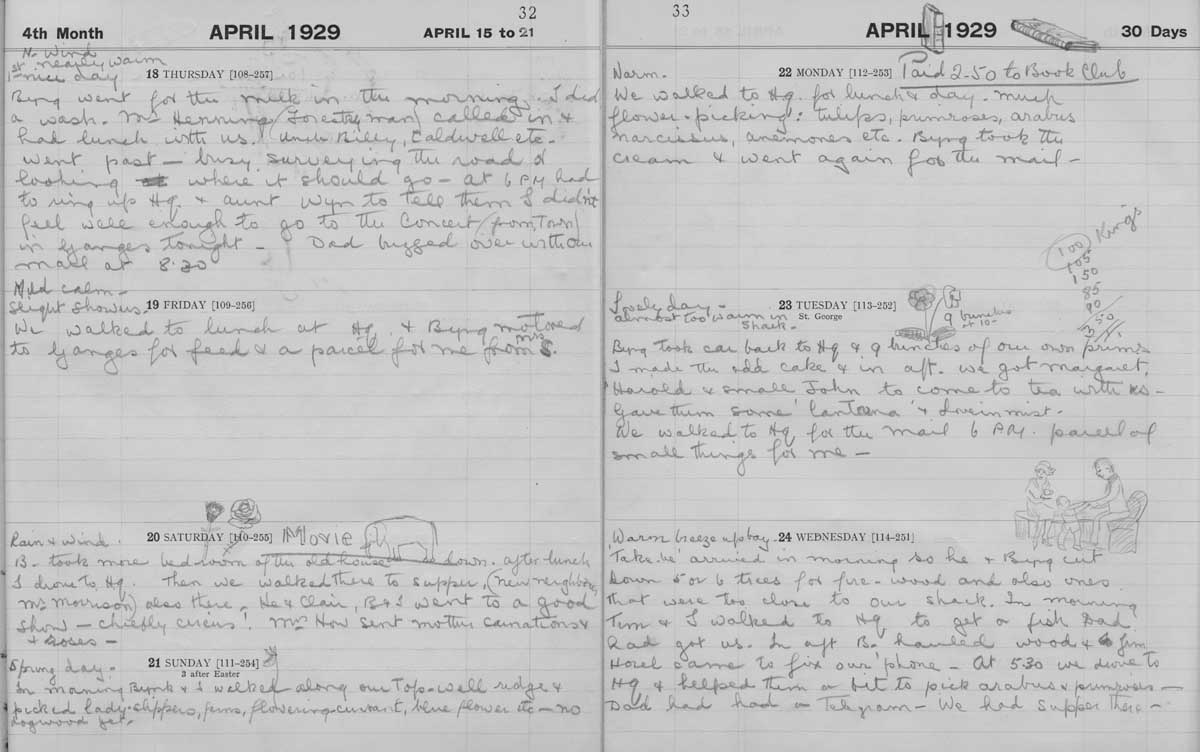 32
4th Month APRIL 1929 APRIL 15 to 21
No Wind
nearly warm
1st nice day
18 THURSDAY [108-257]
Byng went for the milk in the morning. I did
a wash. Mr Henning (Forestry man) called in &
had lunch with us. Uncle Billy, Caldwell etc.
went past — busy surveying the road &
looking where it should go — at 6 PM had
to ring up Hq. & aunt Wyn to tell them I didn't
feel well enough to go to the Concert (from Town)
in Ganges tonight — Dad buzzed over with our
mail at 8.20
Mild calm —
Slight showers.
19 FRIDAY [109-256]
We walked to lunch at Hq. & Byng motored
to Ganges for feed & a parcel for me from Mrs S.
Rain & Wind.
20 SATURDAY [110-255] Movie
B. took more bedroom of the old house down. after lunch
I drove to Hq. Then we walked there to supper, (new neighbour
Mr Morrison) also there. He & Clair, B & I went to a good
show — chiefly circus! Mrs How sent mother carnations &
& roses —
Spring day.
21 SUNDAY [111-254]
3 after Easter
In morning & I walked along our Top-well ridge &
picked lady-slippers, ferns, flowering-currant, blue flower etc — no
dogwood yet.
33
APRIL 1929 30 Days
Warm.
22 MONDAY [112-253] Paid 2.50 to Book Club
We walked to Hq. for lunch & day. much
flower-picking: tulips, primroses, arabus
narcissus, anemones etc. Byng took the
cream & went again for the mail —
King's
100
105
150
85
90
Lovely day —
almost too warm in
Shack.
23 TUESDAY [113-252]
St. George
9 bunches
at 10-
Byng took car back to Hq & 9 bunches of our own prim's
I made the odd cake & in aft. we got Margaret,
Harold & small John to come to tea with us —
Gave them some & love in mist.
We walked to Hq for the mail 6 PM. parcel of
small things for me —
Warm breeze up bay.
24 WEDNESDAY [114-251]
'Take' arrived in morning so he & Byng cut
down 5 or 6 trees for fire-wood and also ones
that were too close to our shack. In morning
Tim & I walked to Hq to get a fish Dad
had got us. In aft B. hauled wood & Jim
Horel came to fix our 'phone — At 5.30 we drove to
Hq & helped them a bit to pick arabus & primroses —
Dad had had a Telegram — We had supper there —